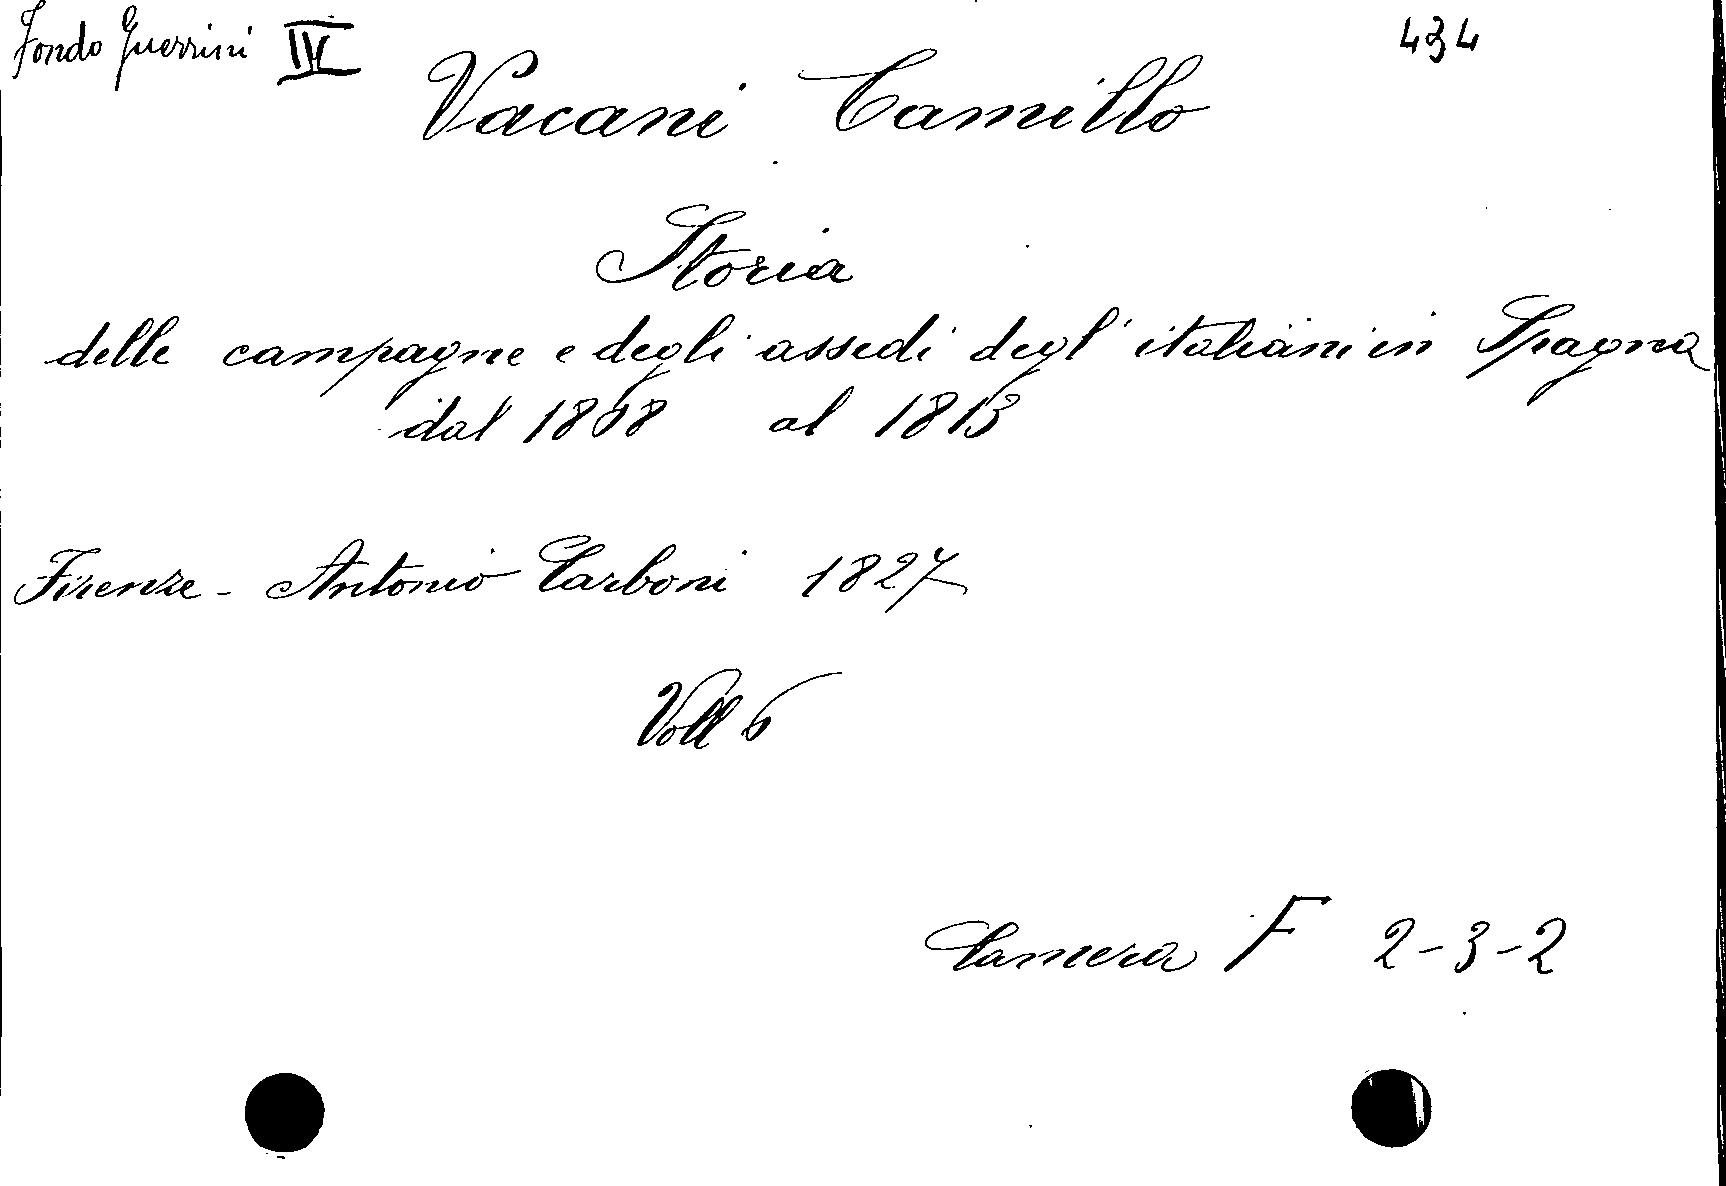 Fondo Guerrini IV 434
Vacani Camillo
Storia
delle campagne e degli assedi degl' italiani in Spagna
dal 1808 al 1813
Firenze - Antonio Carboni 1827
Voll 6
Camera F 2-3-2